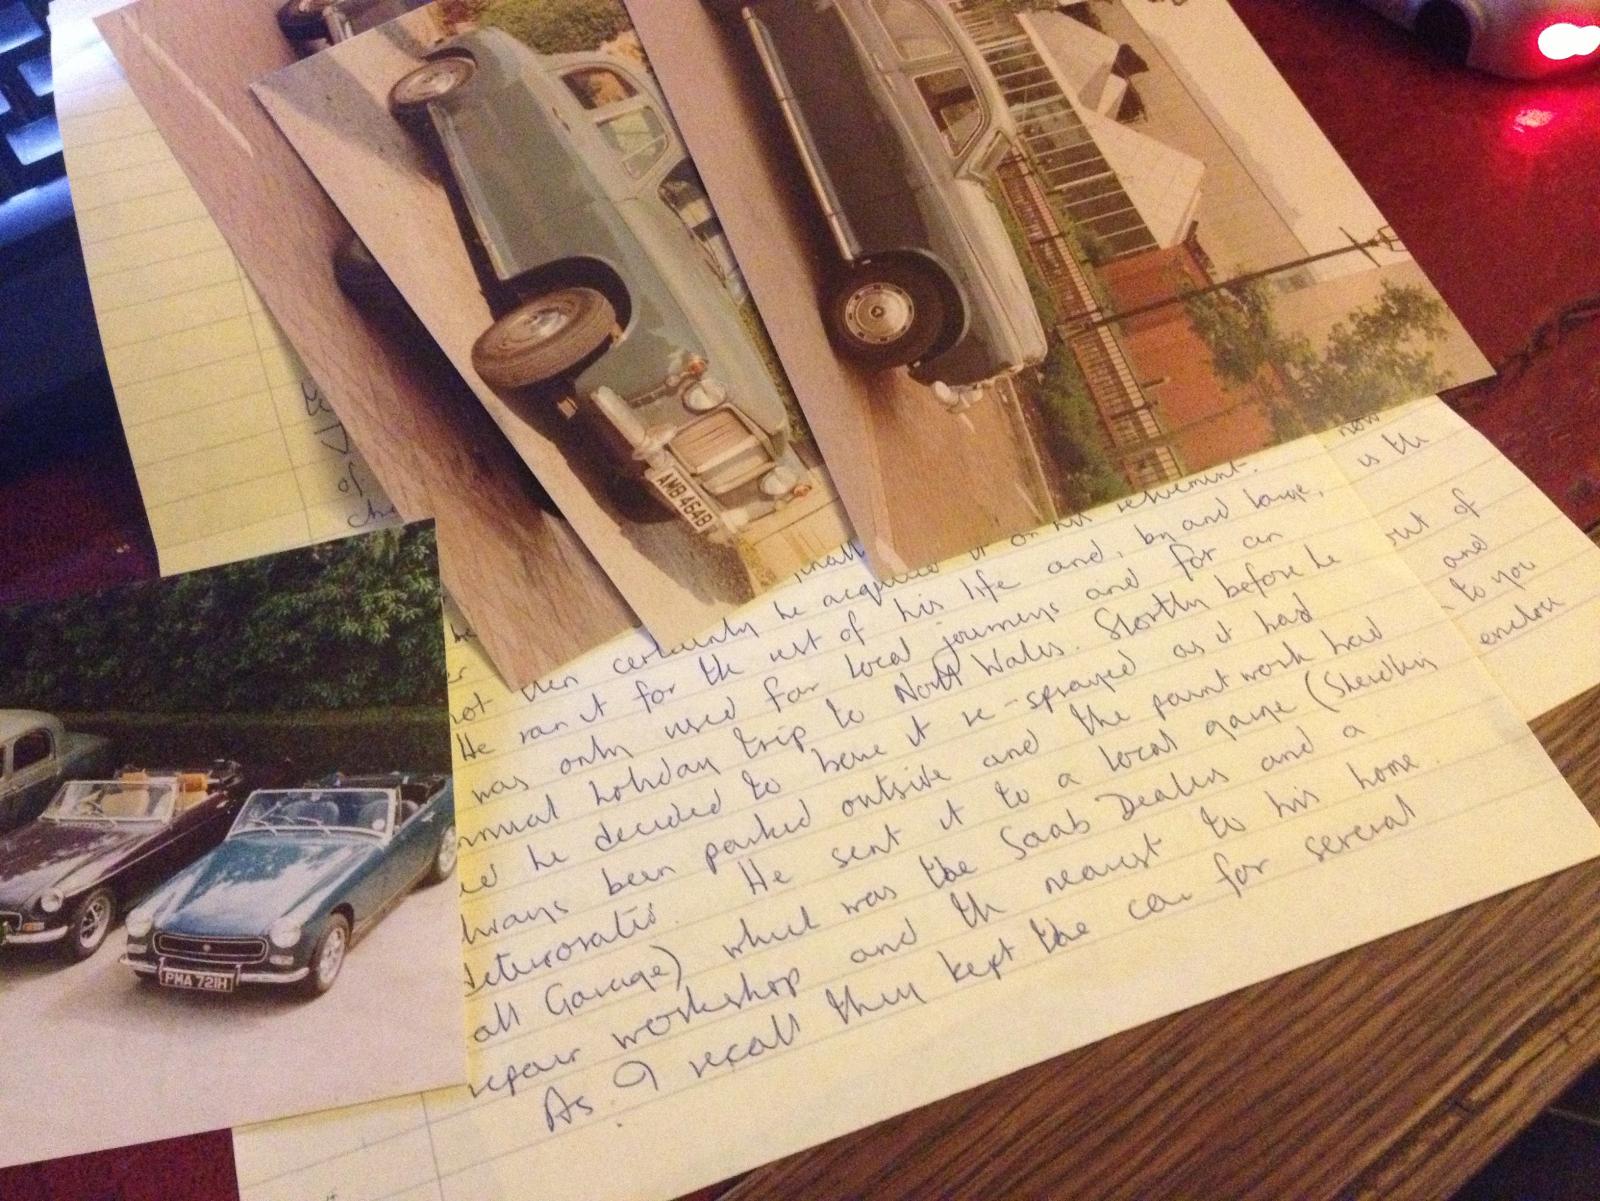 of
AMB 464B
PMA 721H
now
is the
out of
and
to you
enclose
he acquired it on his retirement.
not then certainly
He ran it for the rest of his life and, by and large,
was only used for local journeys and for an
annual holiday trip to North Wales. Shortly before he
he decided to have it re-sprayed as it had
always been parked outside and the paint work had
deteriorated. He sent it to a local garage
all Garage) which was the Saab Dealers and a
repair workshop and the nearest to his home.
As I recall they kept the car for several